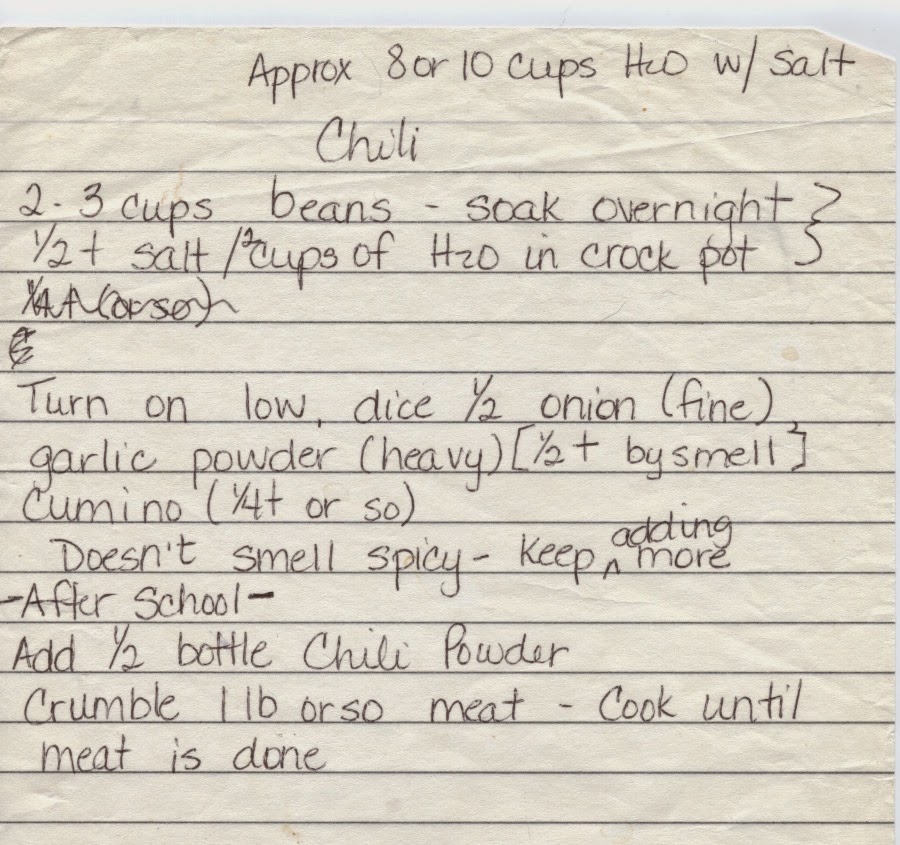 Approx 8 or 10 cups H2O w/ salt
Chili
2-3 cups beans - soak overnight }
1/2 t salt / 2 cups of H2O in crock pot
1/4 t (or so)
Turn on low, dice 1/2 onion (fine)
garlic powder (heavy) [1/2 t by smell]
Cumino (1/4 t or so)
Doesn't smell spicy - keep adding more
-After School-
Add 1/2 bottle Chili Powder
Crumble 1 lb or so meat - Cook until
meat is done